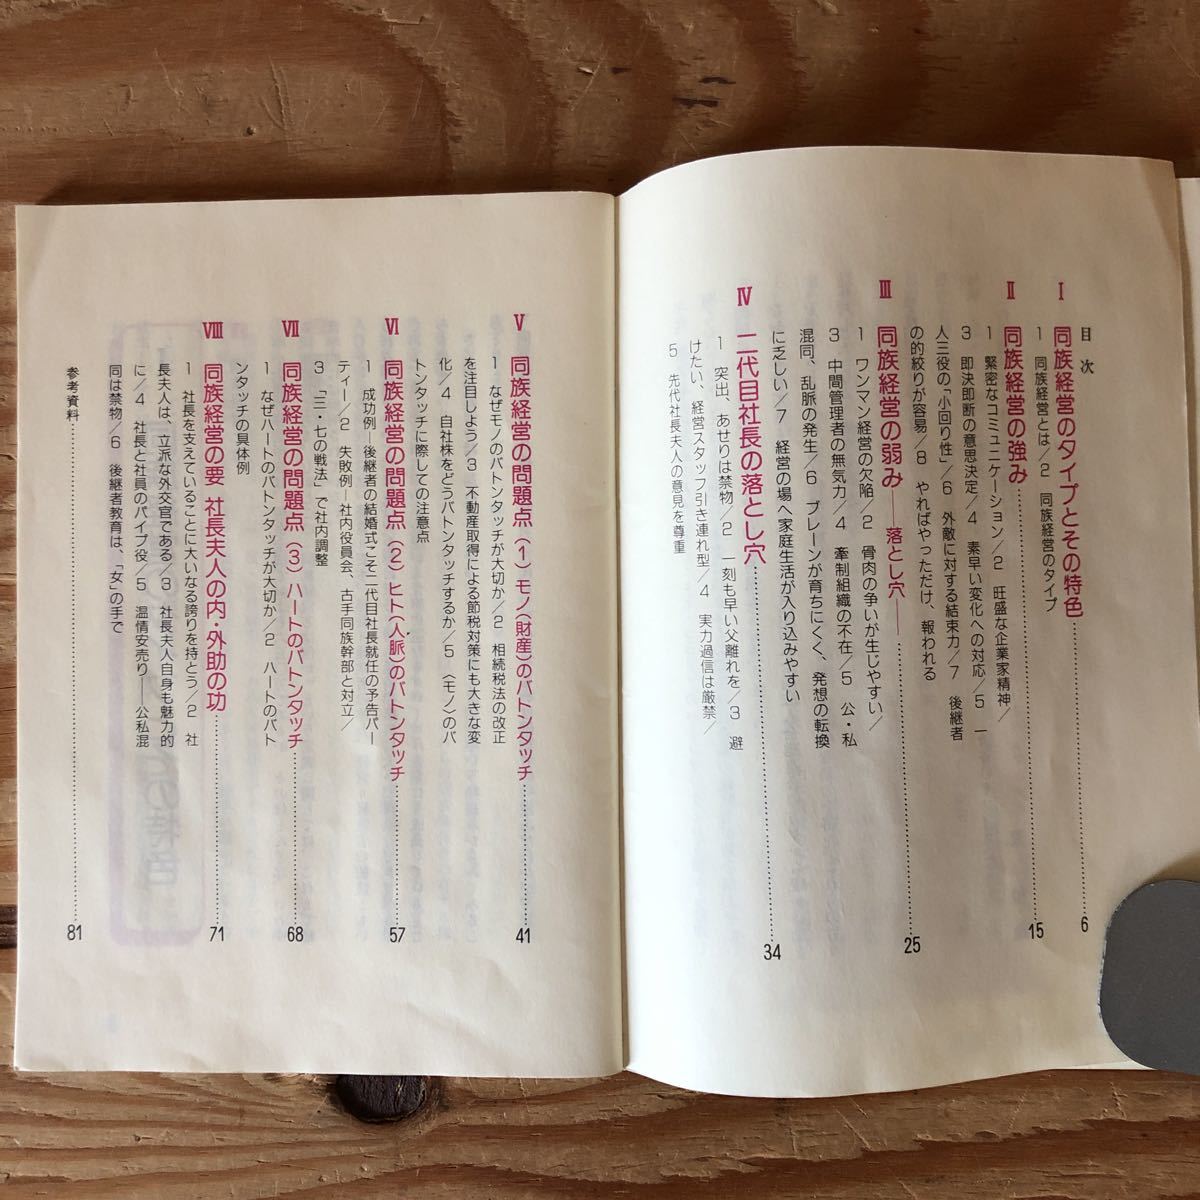 目次
Ⅰ 同族経営のタイプとその特色……6
1 同族経営とは/2 同族経営のタイプ
Ⅱ 同族経営の強み……15
1 緊密なコミュニケーション/2 旺盛な企業家精神/
3 即決即断の意思決定/4 素早い変化への対応/5 一
人三役の「小回り性」/6 外敵に対する結束力/7 後継者
の的絞りが容易/8 やればやっただけ、報われる
Ⅲ 同族経営の弱み――落とし穴――……25
1 ワンマン経営の欠陥/2 骨肉の争いが生じやすい/
3 中間管理者の無気力/4 牽制組織の不在/5 公・私
混同、乱脈の発生/6 ブレーンが育ちにくく、発想の転換
に乏しい/7 経営の場へ家庭生活が入り込みやすい
Ⅳ 二代目社長の落とし穴……34
1 突出、あせりは禁物/2 一刻も早い父離れを/3 避
けたい、経営スタッフ引き連れ型/4 実力過信は厳禁/
5 先代社長夫人の意見を尊重
Ⅴ 同族経営の問題点(1)モノ(財産)のバトンタッチ……41
1 なぜモノのバトンタッチが大切か/2 相続税法の改正
を注目しよう/3 不動産取得による節税対策にも大きな変
化/4 自社株をどうバトンタッチするか/5 〈モノ〉のバ
トンタッチに際しての注意点
Ⅵ 同族経営の問題点(2)ヒト(人脈)のバトンタッチ……57
1 成功例―後継者の結婚式こそ二代目社長就任の予告パー
ティー/2 失敗例―社内役員会、古手同族幹部と対立/
3 「三・七の戦法」で社内調整
Ⅶ 同族経営の問題点(3)ハートのバトンタッチ……68
1 なぜハートのバトンタッチが大切か/2 ハートのバト
ンタッチの具体例
Ⅷ 同族経営の要 社長夫人の内・外助の功……71
1 社長を支えていることに大いなる誇りを持とう/2 社
長夫人は、立派な外交官である/3 社長夫人自身も魅力的
に/4 社長と社員のパイプ役/5 温情安売り――公私混
同は禁物/6 後継者教育は、「女」の手で
参考資料……81